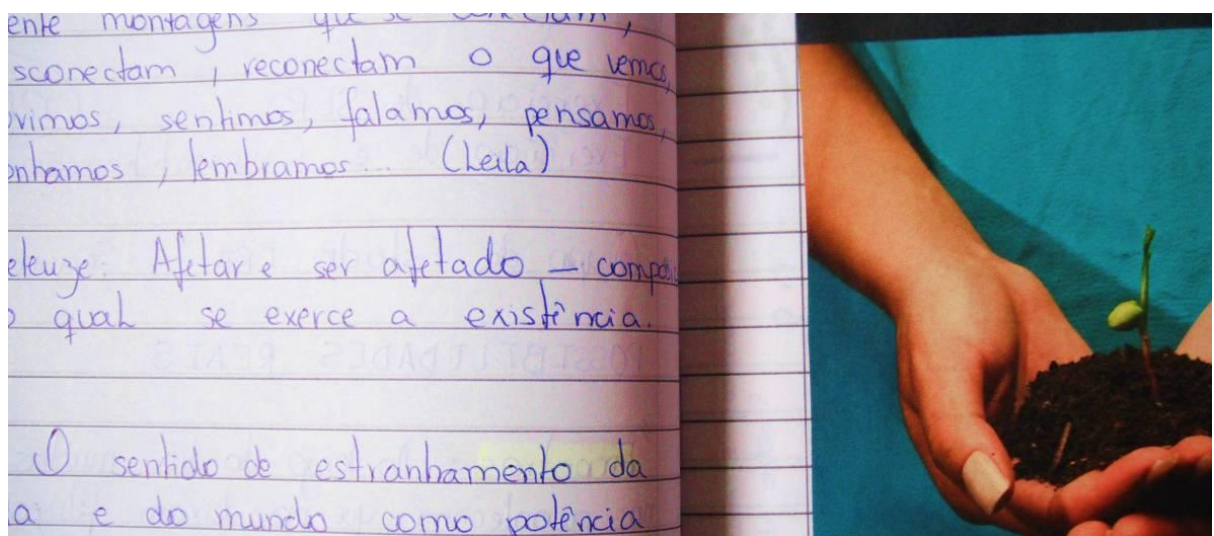 ente montagens que se conectam,
sconectam, reconectam o que vemos,
vimos, sentimos, falamos, pensamos,
onhamos, lembramos... (Leila)
eleuze: Afetar e ser afetado –
qual se exerce a existência.
O sentido de estranhamento da
a e do mundo como potência